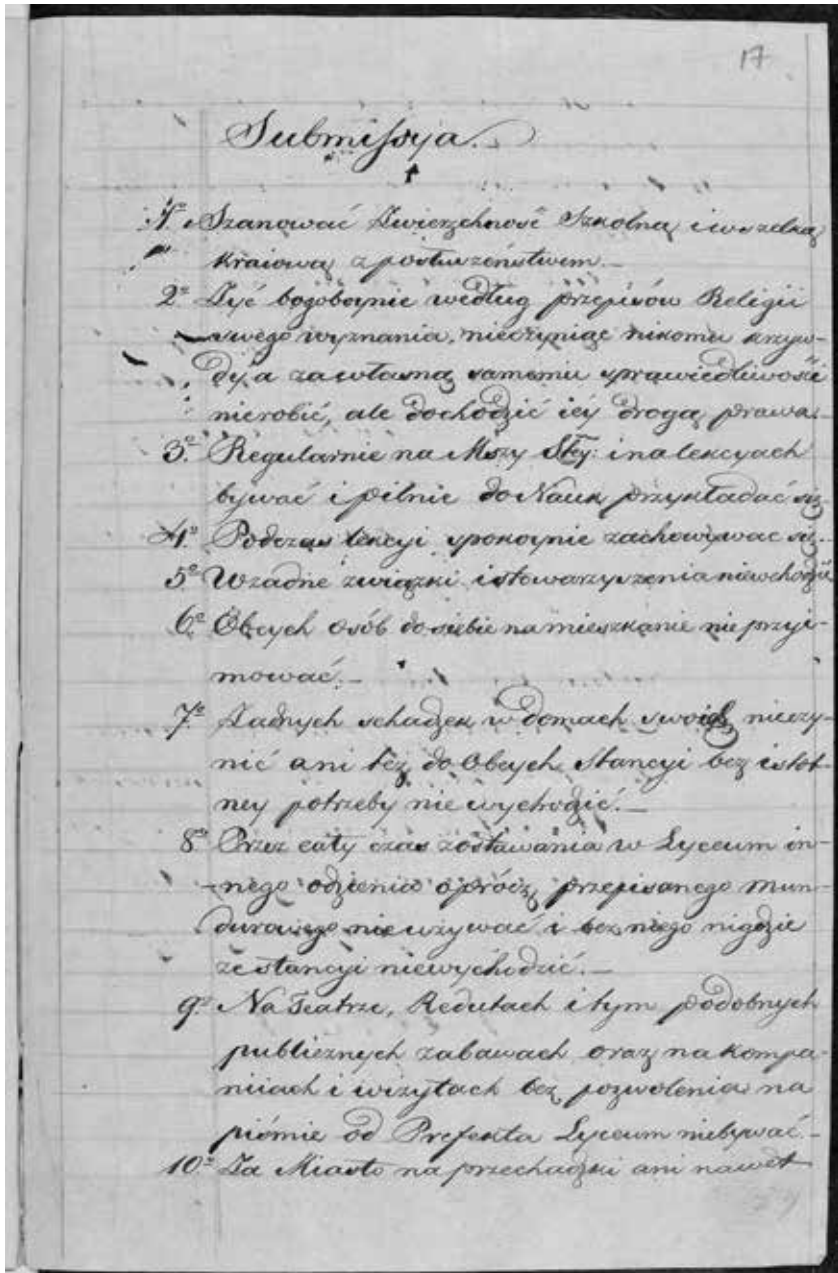 17
Submissyja.
1º Szanować Zwierzchność Szkolną i wszelką
kraiową z posłuszeństwem.—
2º Żyć bogoboynie według przepisów Religii
swego wyznania, nieczyniąc nikomu krzyw-
dy, a za własną samemu sprawiedliwości
nierobić, ale dochodzić iéy drogą prawa.
3º Regularnie na Mszy Stéy: i na lekcyach
bywać i pilnie do Nauk przykładać się
4º Podczas lekcyi spokoynie zachowywac się.—
5º W żadne związki i stowarzyszenia niewchodzić
6º Obcych osób do siebie na mieszkanie nie przyi-
mować.—
7º Żadnych schadzek w domach swoich nieczy-
nić ani też do Obcych Stancyi bez istot-
ney potrzeby nie wychodzić.—
8º Przez cały czas zostawania w Lyceum in-
-nego odzienia oprócz przepisanego mun-
durowego nie używać i bez niego nigdzie
ze stancyi niewychodzić.—
9º Na Teatrze, Redutach i tym podobnych
publicznych zabawach oraz na kompa-
niiach i wizytach bez pozwolenia na
piśmie od Prefekta Lyceum niebywać.—
10º Za Miasto na przechadzki ani nawet